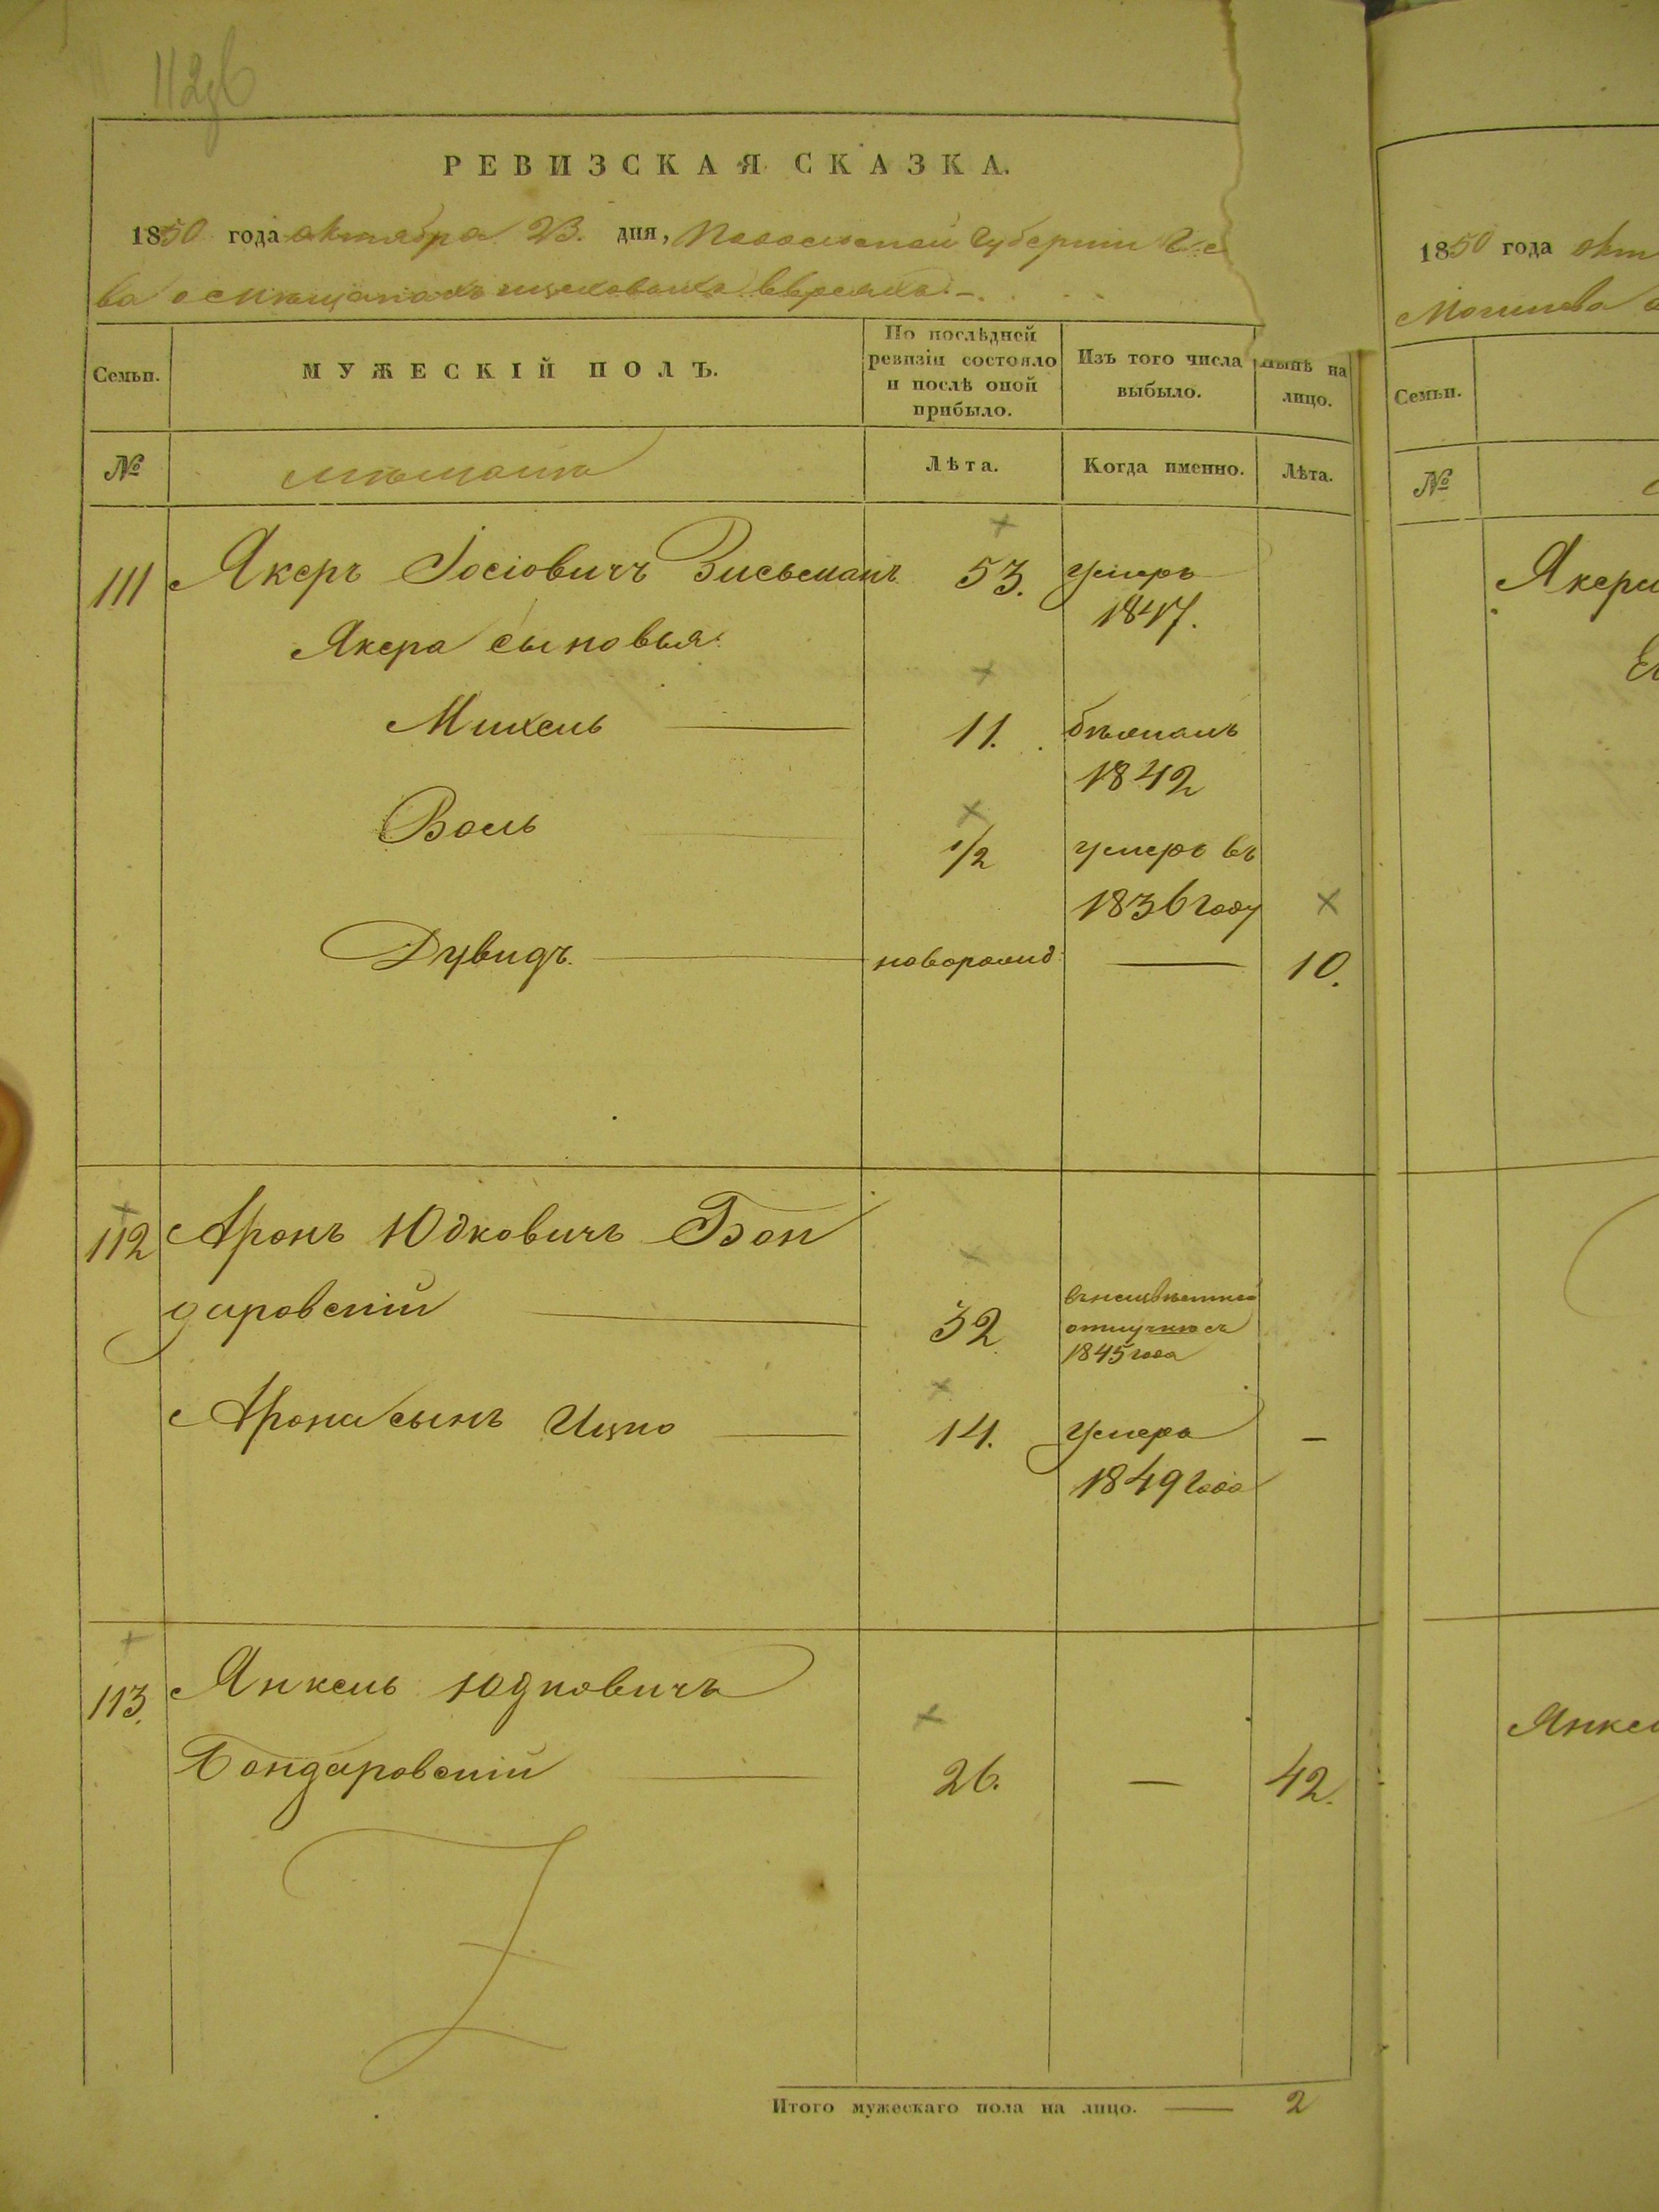 РЕВИЗСКАЯ СКАЗКА.
1850 года октября 23. дня, Подольской Губерніи
ва о мѣщанахъ евреяхъ.
Семьи.
МУЖЕСКІЙ ПОЛЪ.
По послѣдней
ревизіи состояло
и послѣ оной
прибыло.
Изъ того числа
выбыло.
Нынѣ на
лицо.
№
мѣщане
Лѣта.
Когда именно.
Лѣта.
111 Якеръ Іосіовичъ Зисьманъ 53. умеръ
1847.
Якера сыновья
Михель 11. бѣжалъ
1842
Воль 1/2 умеръ въ
1836 году
Дувидъ. новорожд: — 10.
112 Аронъ Юдковичъ Бон
даровскій 32 въ неизвѣстной
отлучкѣ съ
1845 года
Арона сынъ Ицко 14. умеръ —
1849 года
113. Янкель Юдковичъ
Бондаровскій 26. — 42.
Итого мужескаго пола на лицо. — 2
1850 года окт
Могилева
Семьи.
№
Якера
Янкел